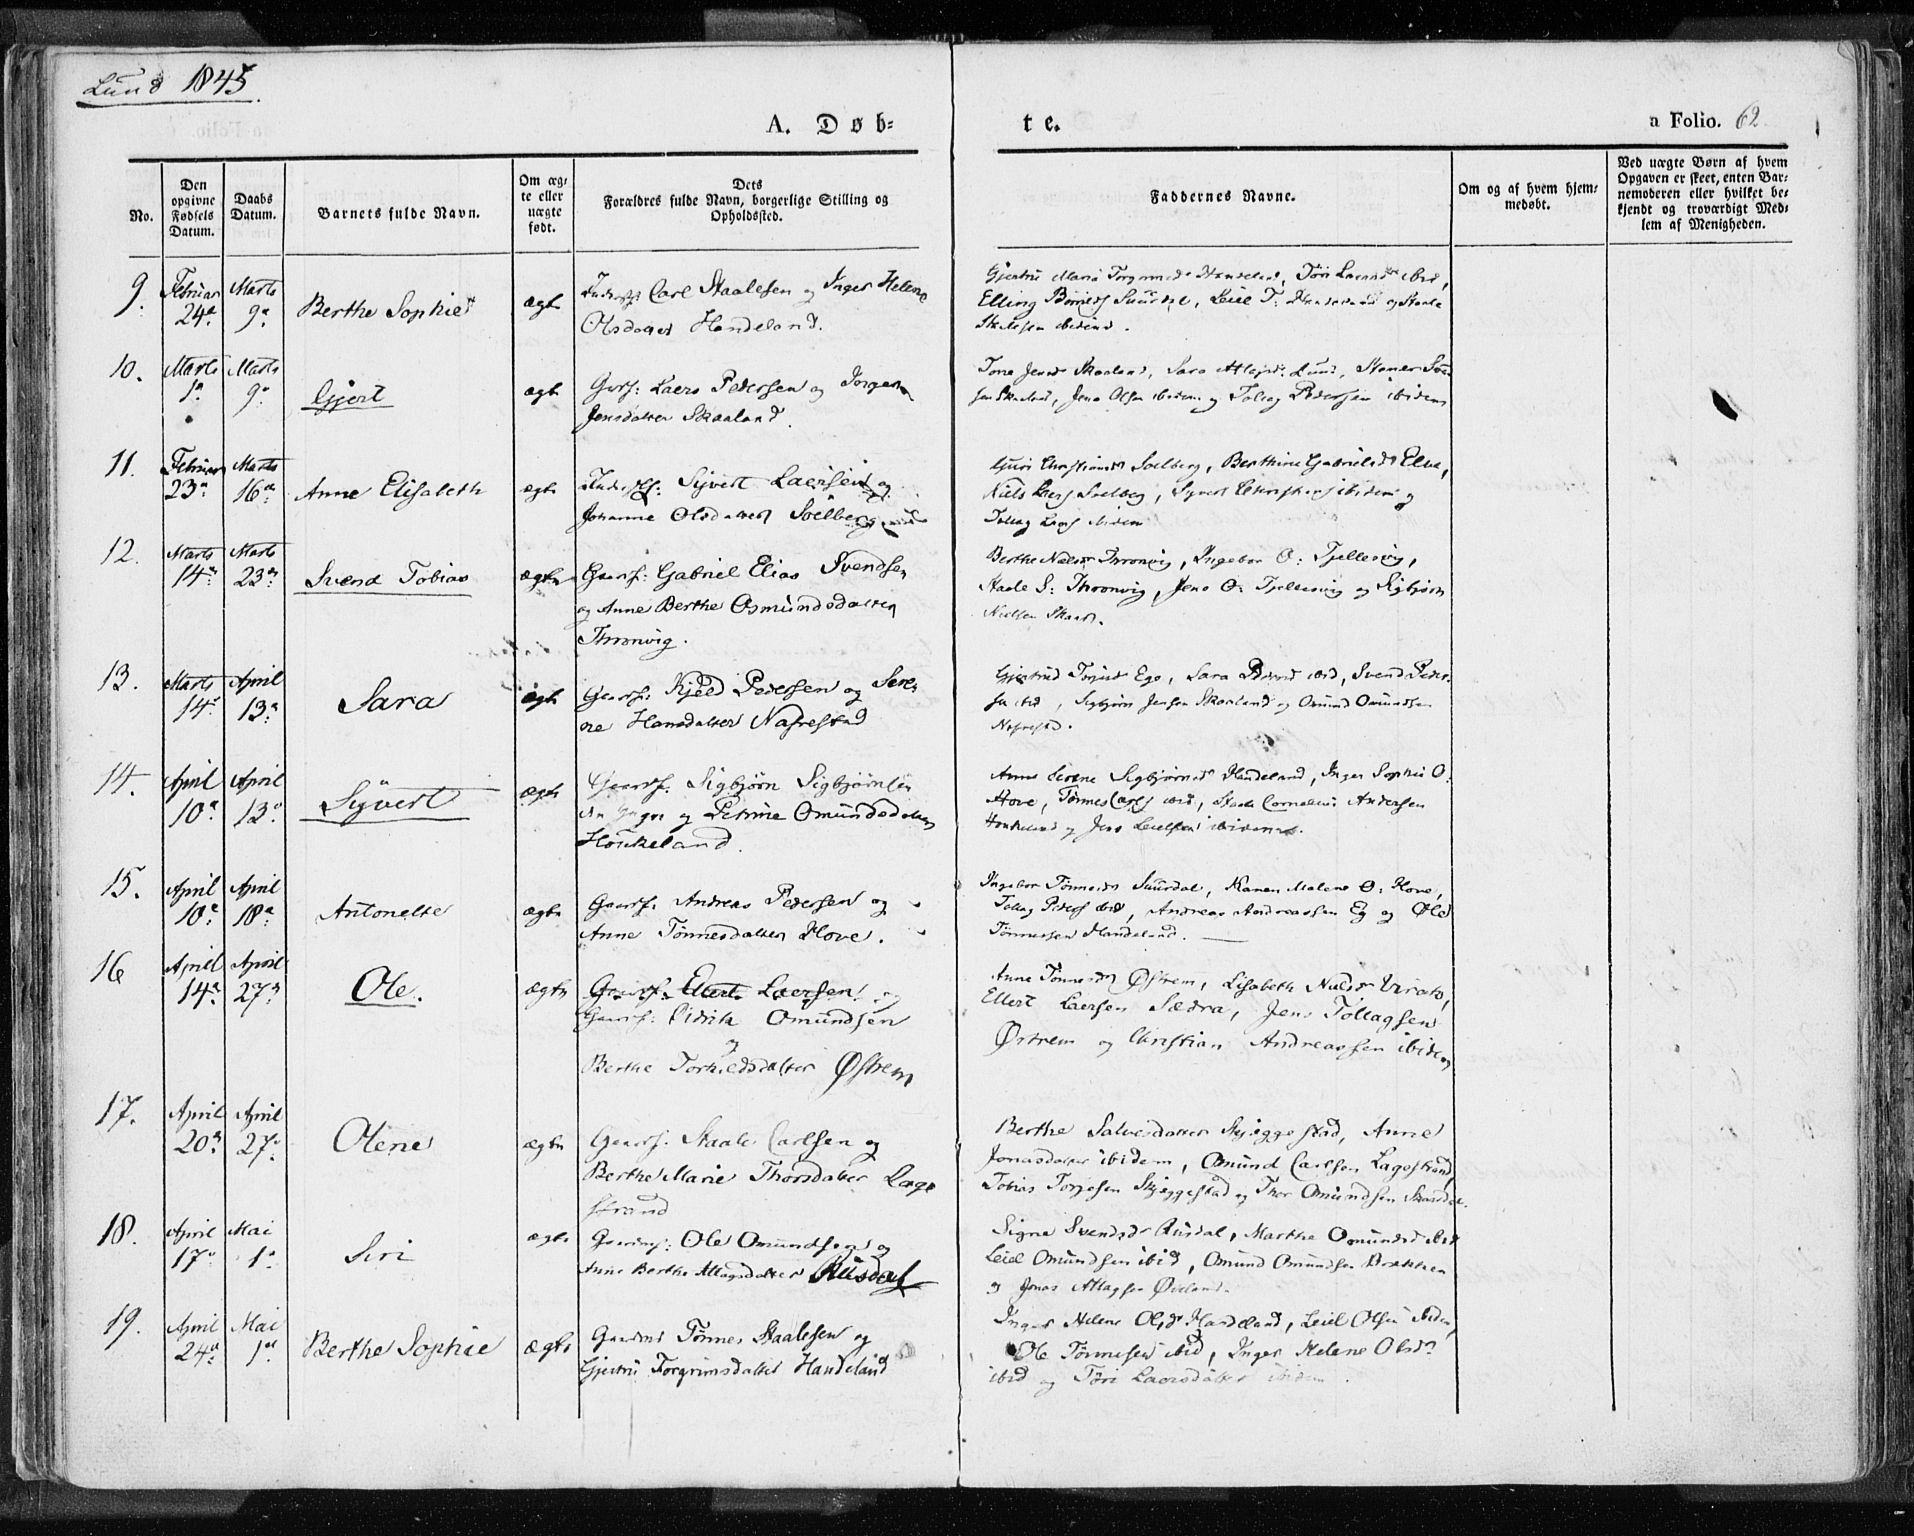 Lund 1845.
A. Døb-
te.
a Folio. 62
No.
Den opgivne Fødsels Datum.
Daabs Datum.
Barnets fulde Navn.
Om ægte eller uægte født.
Dets Forældres fulde Navn, borgerlige Stilling og Opholdssted.
Faddernes Navne.
Om og af hvem hjemmedøbt.
Ved uægte Børn af hvem Opgaven er skeet, enten Barnemoderen eller hvilket bekjendt og troværdigt Medlem af Menigheden.
9. Februar 24de Marts 9de Berthe Sophie ægte
Carl Staalesen og Inger Helene
Olsdatter Handeland.
Elling Leiel T: Handeland og Staale
Staalesen ibidem.
10. Marts 1. Marts 9. Gjert ægte
Gbrf: Laers Pedersen og
Jensdatter Skaaland.
Tone Jensd. Skaaland, Sara Lund,
Skaaland, Jens Olsen ibidem og Tollag Pedersen ibidem
11. Februar 23. Marts 16de Anne Elisabeth ægte
Sivert Laersen og
Johanne Olsdatter Soelberg
Soelberg, Berthine Gabrielsd. Elve,
Niels Laers. Soelberg, ibidem og
Tollag Laers. ibidem
12. Marts 14. Marts 23. Svend Tobias ægte
Gaardf: Gabriel Elias Svendsen
og Anne Berthe Osmundsdatter
Thronvig.
Berthe Nielsd. Thronvig, Ingebor O: Tjellesvig,
Staale S: Thronvig, Jens O: Tjellesvig og Sigbjørn
Nielsen Skaar.
13. Marts 14. April 13. Sara ægte
Gaardf: Kjeld Pedersen og Sere-
ne Hansdatter Nafrestad
Ege, Sara ibid, Svend Peder-
sen ibid, Sigbjørn Jensen Skaaland og Omund Omundsen
Nafrestad.
14. April 10. April 13. Sÿvert ægte
Gaardf. Sigbjørn Sigbjørnsen
den Yngre og Petrine Omundsdatter
Houkeland.
Anne Serene Sigbjørnsd. Handeland, Inger Sophie O:
Hove, Tønnes Carls. ibid, Staale Cornelius Andersen
Houkeland og Jens Leielsen ibidem.
15. April 10. April 18. Antonette ægte
Gaardf. Andreas Pedersen og
Anne Tønnesdatter Hove.
Ingebor Tønnesd. Suurdal, Karen Malene O: Hove,
Tollag Peders. ibid, Andreas Andreassen Eg og Ole
Tønnesen Handeland.
16 April 14. April 27. Ole. ægte
Gaardf. Ellert Laersen og
Gaardf: Didrik Omundsen
og
Berthe Torkildsdatter Østrem
Anne Tønnesd. Østrem, Lisabeth Nielsd. Virak,
Ellert Laersen Sædra, Jens Tollagsen
Østrem og Christian Andreassen ibidem
17. April 20. April 27. Olene ægte
Gaardf. Staale Carlsen og
Berthe Marie Thorsdatter Lage
strand
Berthe Salvesdatter Skjeggestad, Anne
Jonasdatter ibidem, Omund Carlsen Lagestrand,
Tobias Torjesen Skjeggestad og Thor Omundsen
18. April 17. Mai 1. Siri ægte
Ole Omundsen og
Anne Berthe Attlagsdatter Rusdal
Signe Svendsd. Rusdal, Marthe Omundsd. ibid
Leiel Omundsen ibid, Omund Omundsen Brækken
og Jonas Atlagsen Øvland.
19. April 24. Mai 1. Berthe Sophie ægte
Gaardmd Tønnes Staalesen og
Gjertru Torgrimsdatter Handeland
Inger Helene Olsd. Handeland, Leiel Olsen ibidem,
Ole Tønnesen ibid, Inger Helene Olsd.
ibid og Tøri Laersdatter ibidem.